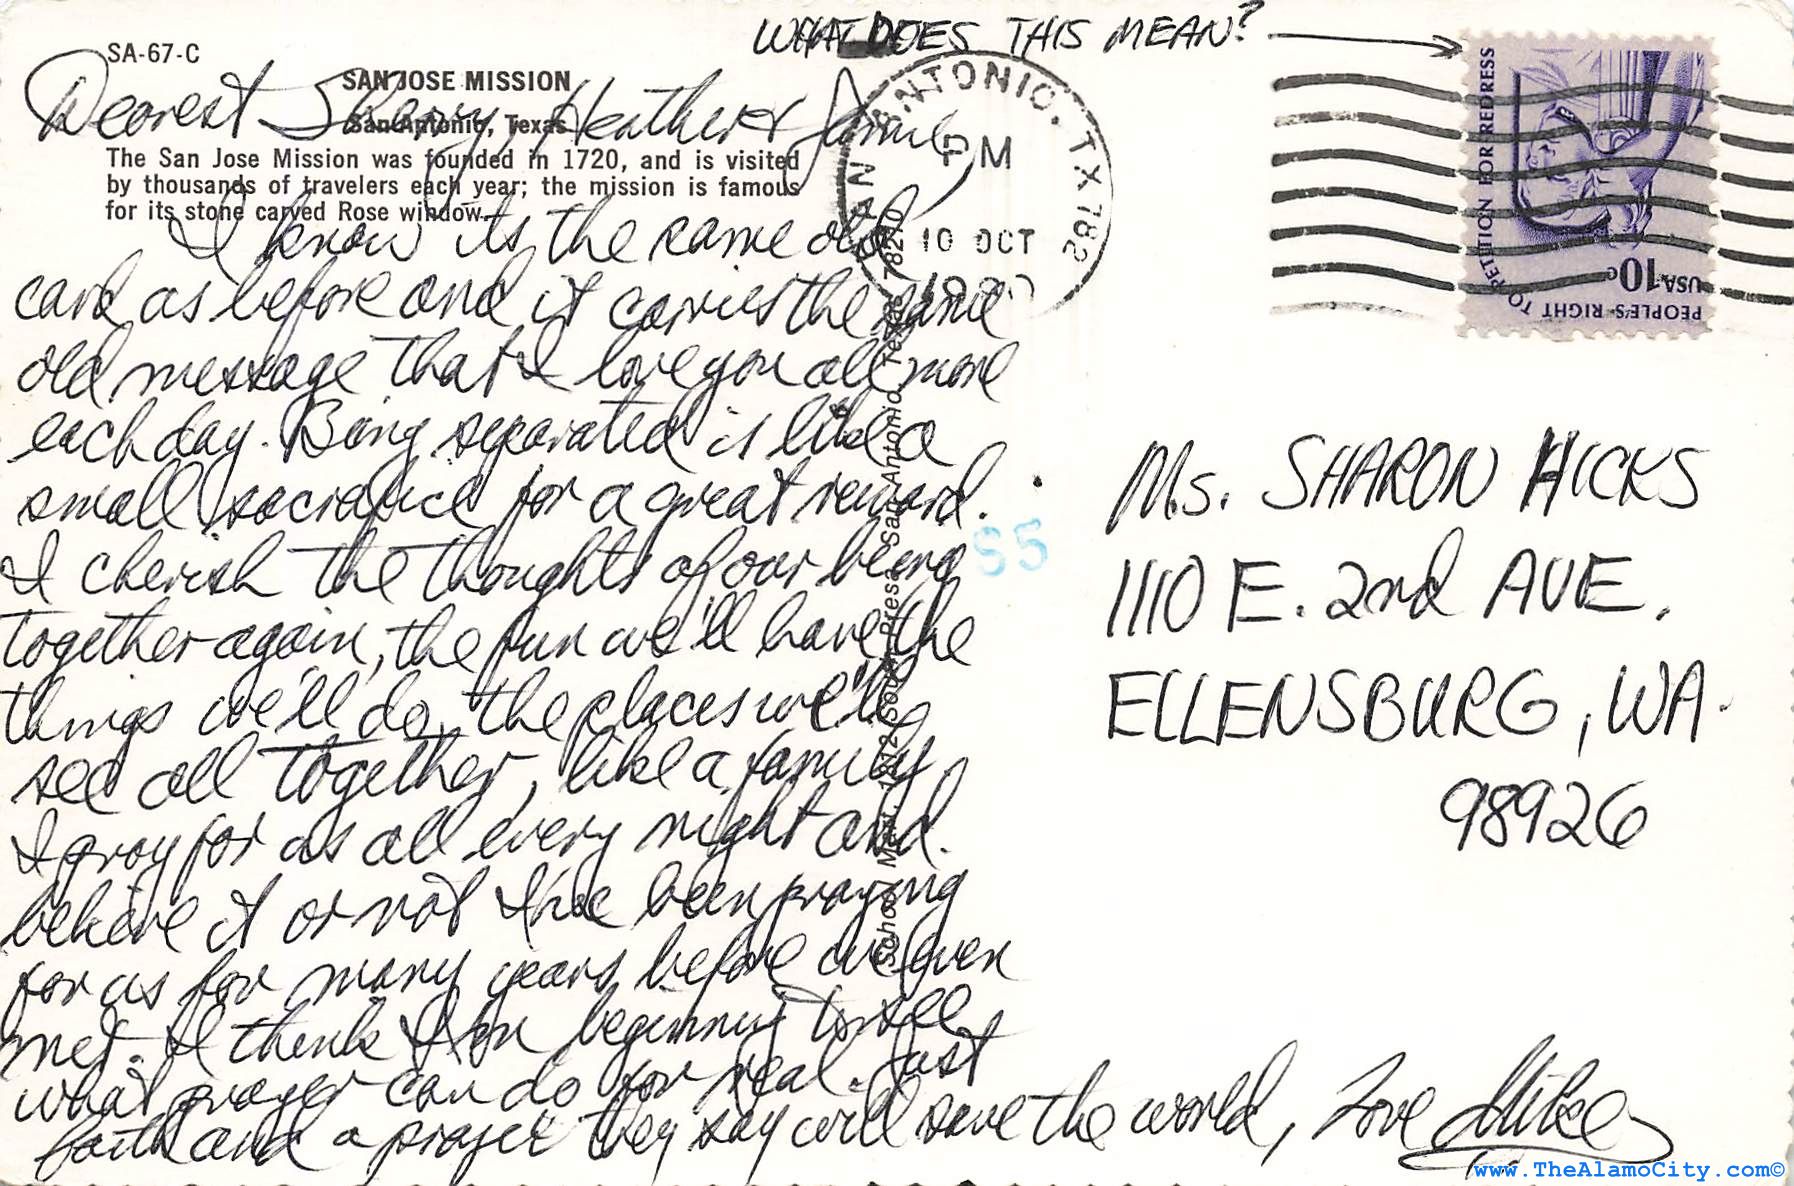 WHAT DOES THIS MEAN?
SA-67-C
SAN JOSE MISSION
San Antonio, Texas
The San Jose Mission was founded in 1720, and is visited
by thousands of travelers each year; the mission is famous
for its stone carved Rose window.
Dearest Sherry, Heather & Jamie,
I know its the same old
card as before and it carries the same
old message that I love you all more
each day. Being separated is like a
small sacrifice for a great reward.
I cherish the thoughts of our being
together again, the fun we'll have the
things we'll do, the places we'll
see all together, like a family
I pray for us all every night and
believe it or not I've been praying
for us for many years before we even
met. I think I'm beginning to see
what prayer can do for real. Just
faith and a prayer they say will save the world, Love Mike
SAN ANTONIO, TX 782
PM
10 OCT
1980
PEOPLE'S RIGHT TO PETITION FOR REDRESS
USA 10c
Ms. SHARON HICKS
1110 E. 2nd AVE.
ELLENSBURG, WA.
98926
S5
School Mart, 1812 South Press, San Antonio, Texas 78210
www.TheAlamoCity.com©